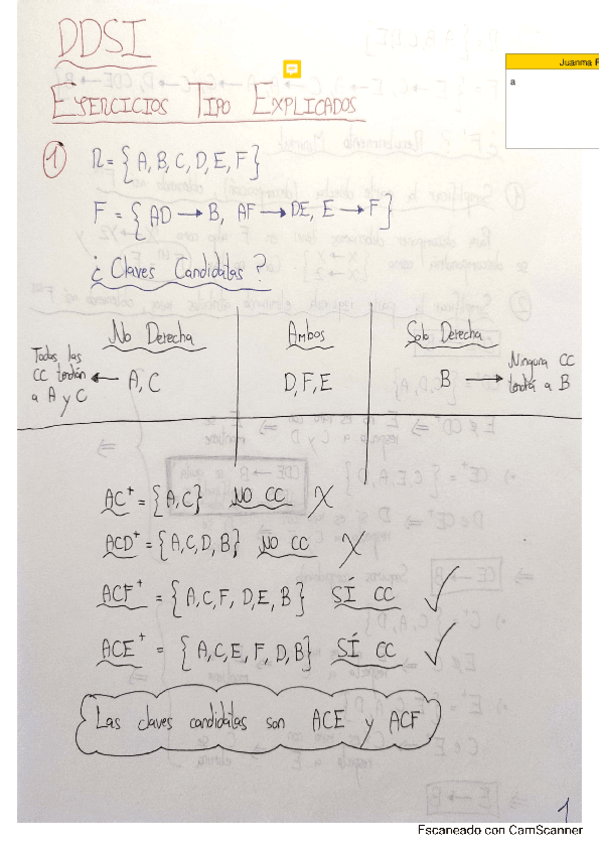 DDSI
EJERCICIOS TIPO EXPLICADOS
Juanma P
a
1 R = { A, B, C, D, E, F }
F = { AD → B, AF → DE, E → F }
¿ Claves Candidatas ?
No Derecha Ambos Solo Derecha
Todas las CC tendrán a A y C ← A, C D, F, E B → Ninguna CC tendrá a B
AC⁺ = { A, C } NO CC X
ACD⁺ = { A, C, D, B } NO CC X
ACF⁺ = { A, C, F, D, E, B } SÍ CC ✓
ACE⁺ = { A, C, E, F, D, B } SÍ CC ✓
Las claves candidatas son ACE y ACF
1
Escaneado con CamScanner